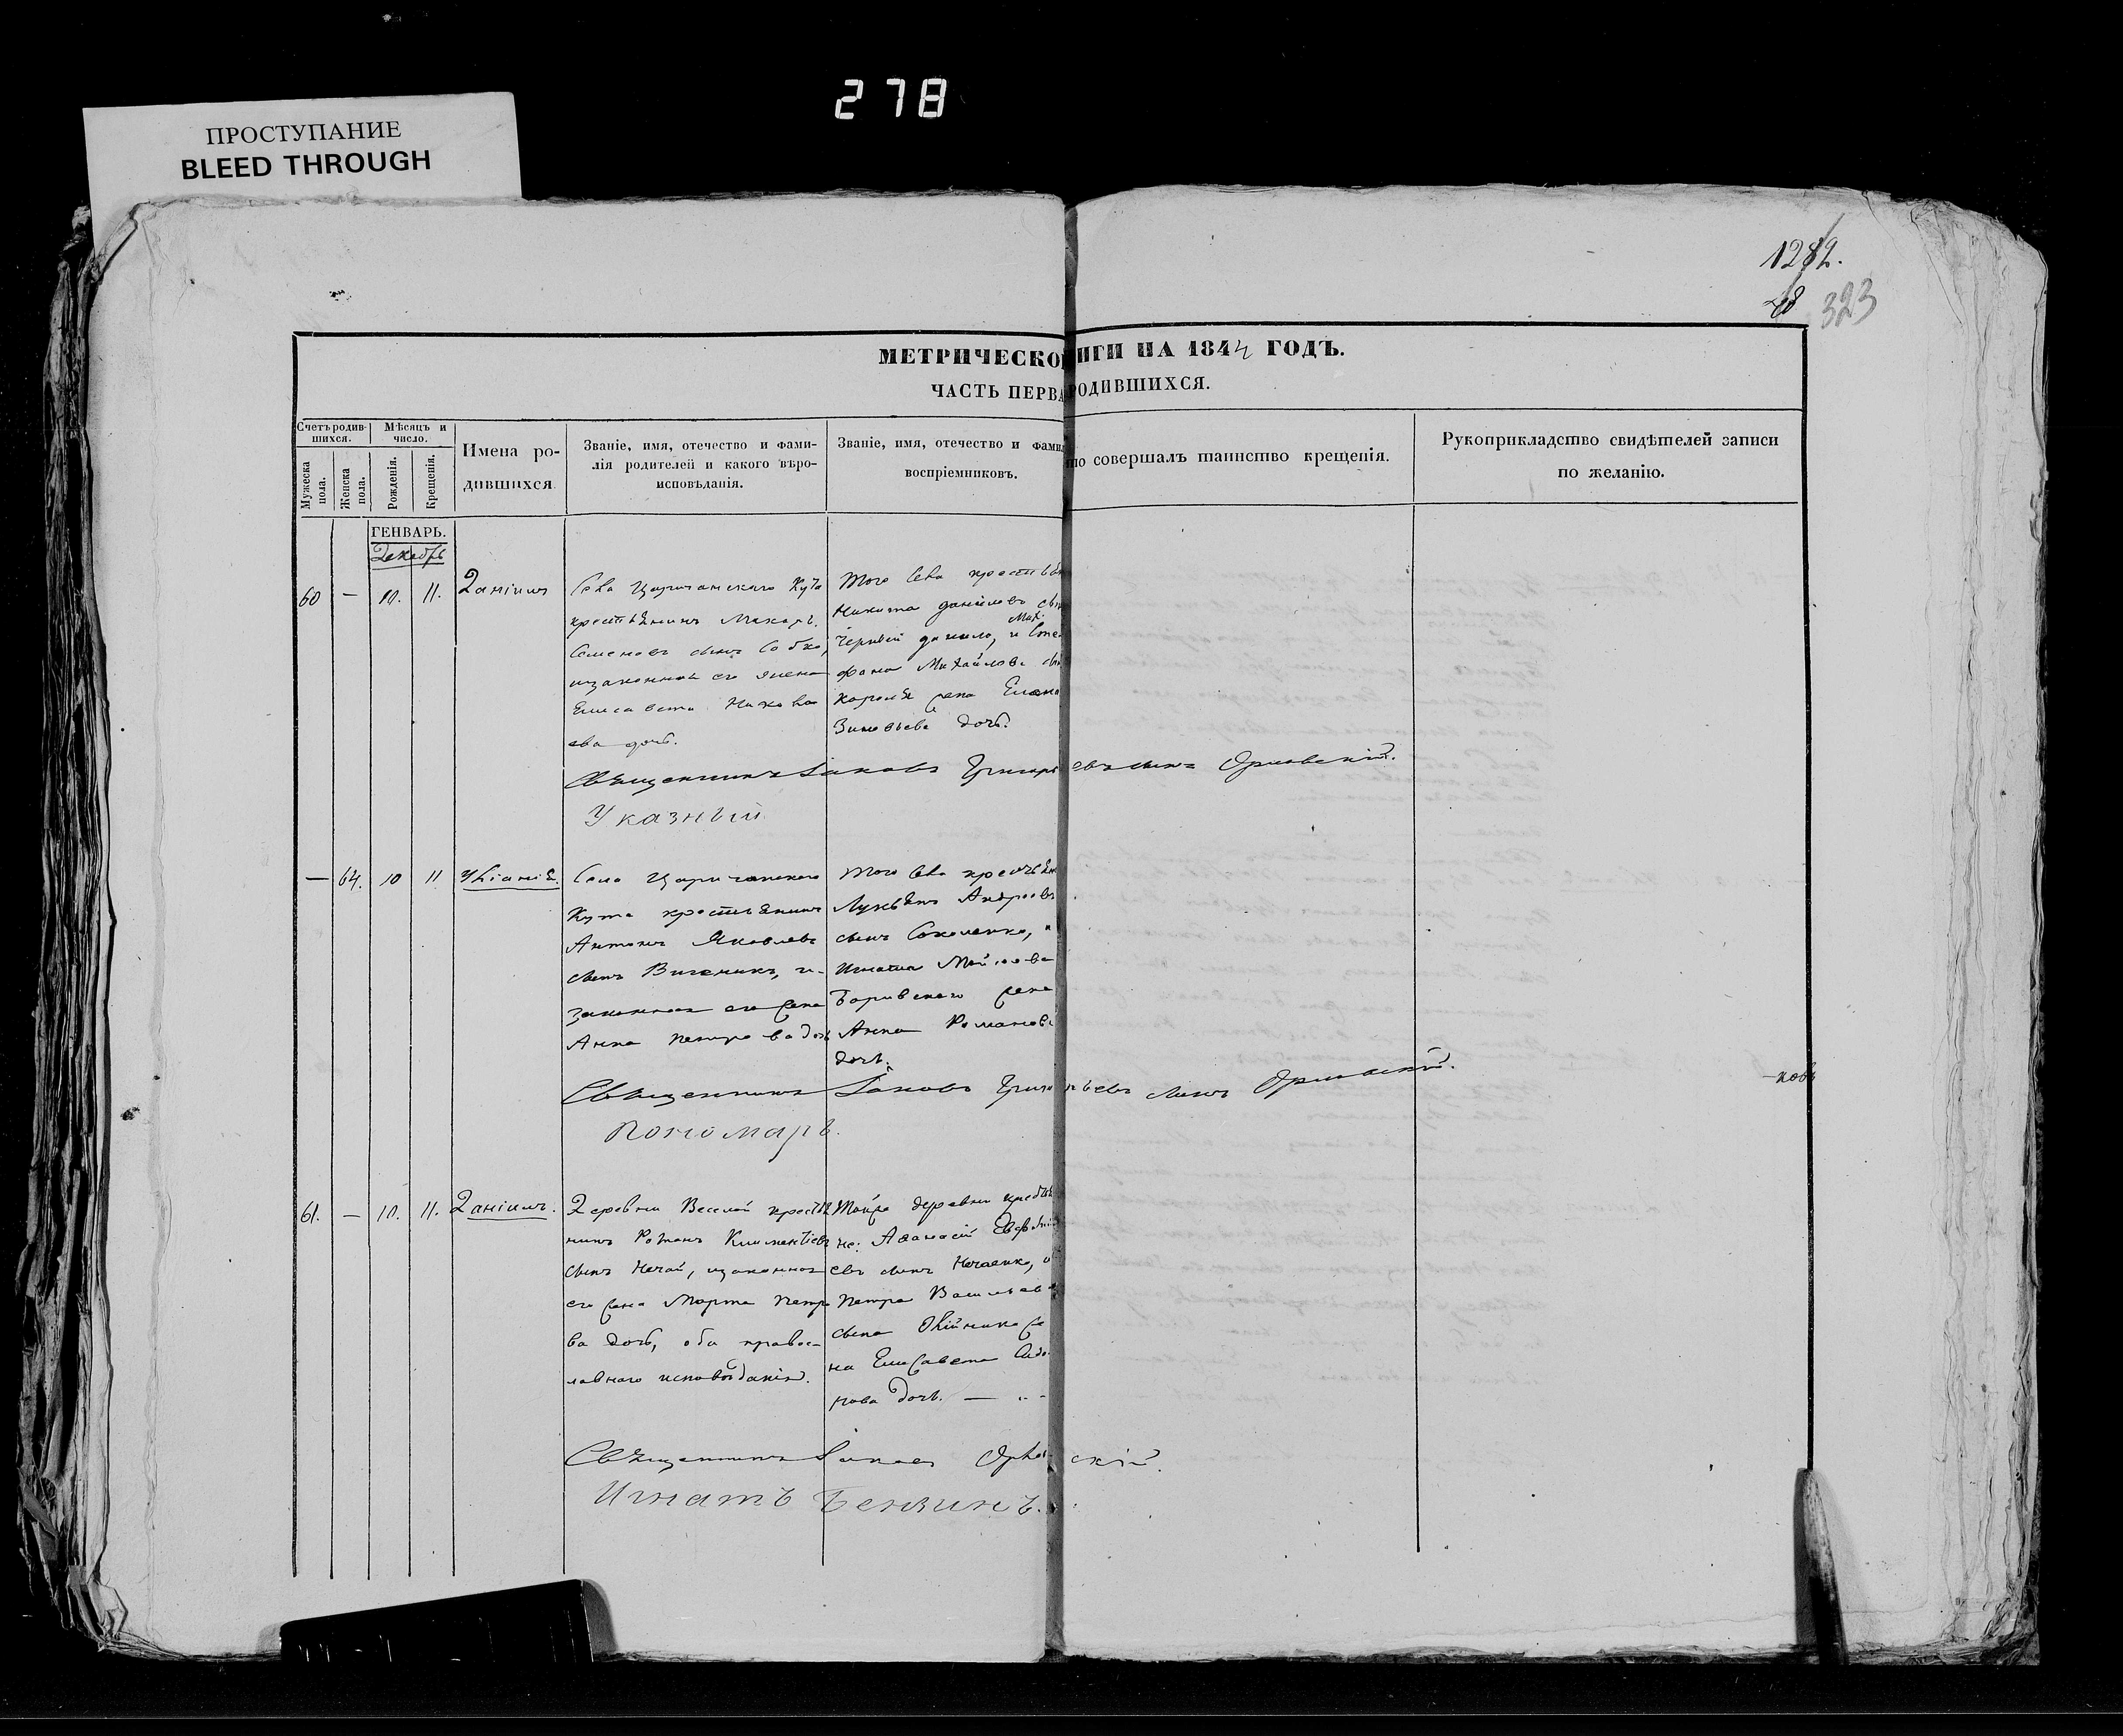 278
ПРОСТУПАНИЕ
BLEED THROUGH
1282.
323
МЕТРИЧЕСКО ИГИ НА 1844 ГОДЪ.
ЧАСТЬ ПЕРВА РОДИВШИХСЯ.
Счетъ родив-
шихся.
Мѣсяцъ и
число.
Мужеска
пола.
Женска
пола.
Рожденія.
Крещенія.
Имена ро-
дившихся
Званіе, имя, отечество и фами-
лія родителей и какого вѣро-
исповѣданія.
Званіе, имя, отечество и фами
воспріемниковъ.
то совершалъ таинство крещенія.
Рукоприкладство свидѣтелей записи
по желанію.
ГЕНВАРЬ.
Декабрь
60 — 10. 11. Даніилъ
Села Царичанскаго Кута
крестьянинъ Макаръ
Семеновъ сынъ Собко,
изаконная его жена
Елисавета
ева дочь.
Того села
Никита Даниловъ
и Сте-
фана Михайлова
жена
Зиновьева дочь.
Священникъ Іаковъ Григорьевъ сынъ Орловскій.
Указный
— 64. 10 11 Уліанія.
Села Царичанскаго
Кута крестьянинъ
Антонъ Яковлевъ
сынъ и
законная его жена
Анна Петрова дочь
Того села
Лукьянъ Андреевъ
сынъ Соколенко, и
Игната
жена
Анна Романова
дочь.
Священникъ Іаковъ Григорьевъ сынъ Орловскій.
Пономарь.
-новъ
61. — 10. 11. Даніилъ.
Деревни Веселой крестья
нинъ Романъ Климентіевъ
сынъ Нечай, изаконная
его жена Марта Петро
ва дочь, оба правос-
лавнаго исповѣданія.
Тойже деревни
не: Афанасій
евъ сынъ Нечаенко, и
Петра Васильева
сына Олійника же
на Елисавета
нова дочь. —
Священникъ Іаковъ Орловскій.
Игнатъ Бензинъ.